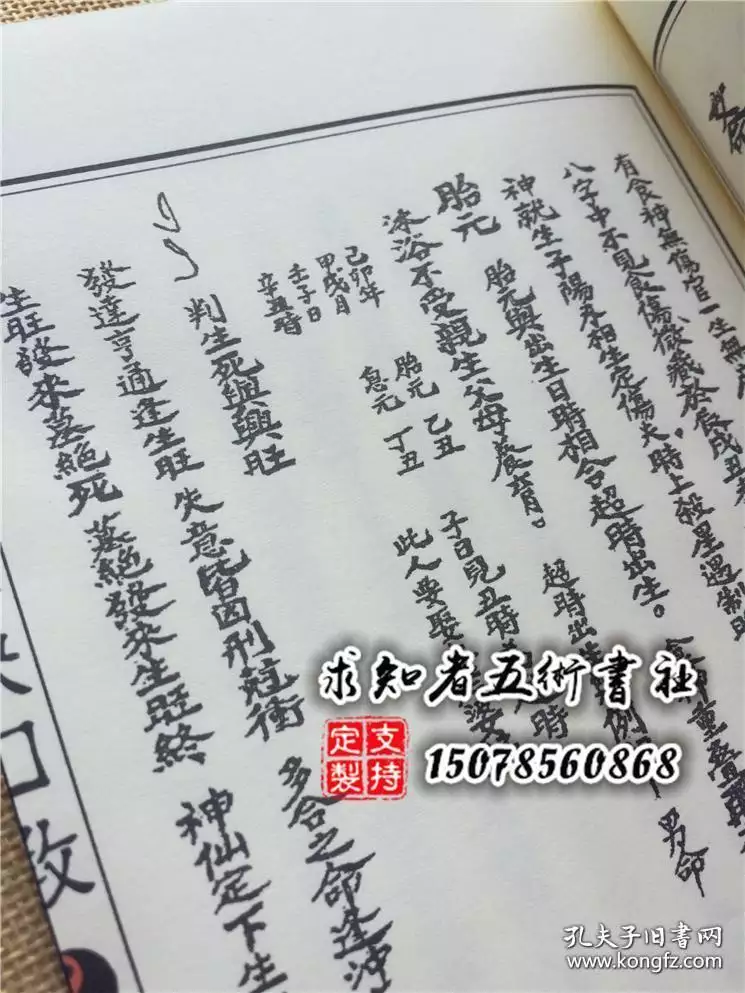 有食神無傷官一生無
八字中不見食傷微藏於辰戌丑
神就生子陽木相生定傷夫時上殺星遇制
食神重疊
男命
胎元 胎元與出生日時相合超時出生。
沐浴不受親生父母養育。
超時出生
例
己卯年
甲戌月
壬子日
辛丑時
胎元 乙丑
息元 丁丑
子日見丑時
此人要娶
判生死與興旺
發達亨通逢生旺 失意皆因刑尅衝 多合之命逢沖
生旺發來墓絕死 墓絕發來生旺終 神仙定下生
求知者五術書社
支持定製
15078560868
孔夫子旧書网
www.kongfz.com